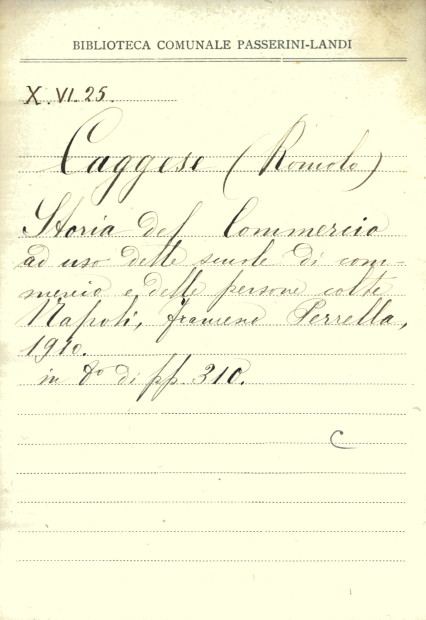 BIBLIOTECA COMUNALE PASSERINI-LANDI
X.VI.25.
Caggese (Romolo)
Storia del Commercio
ad uso delle scuole di com-
mercio e delle persone colte
Napoli, Francesco Perrella,
1910.
in 8º di pp. 310.
C